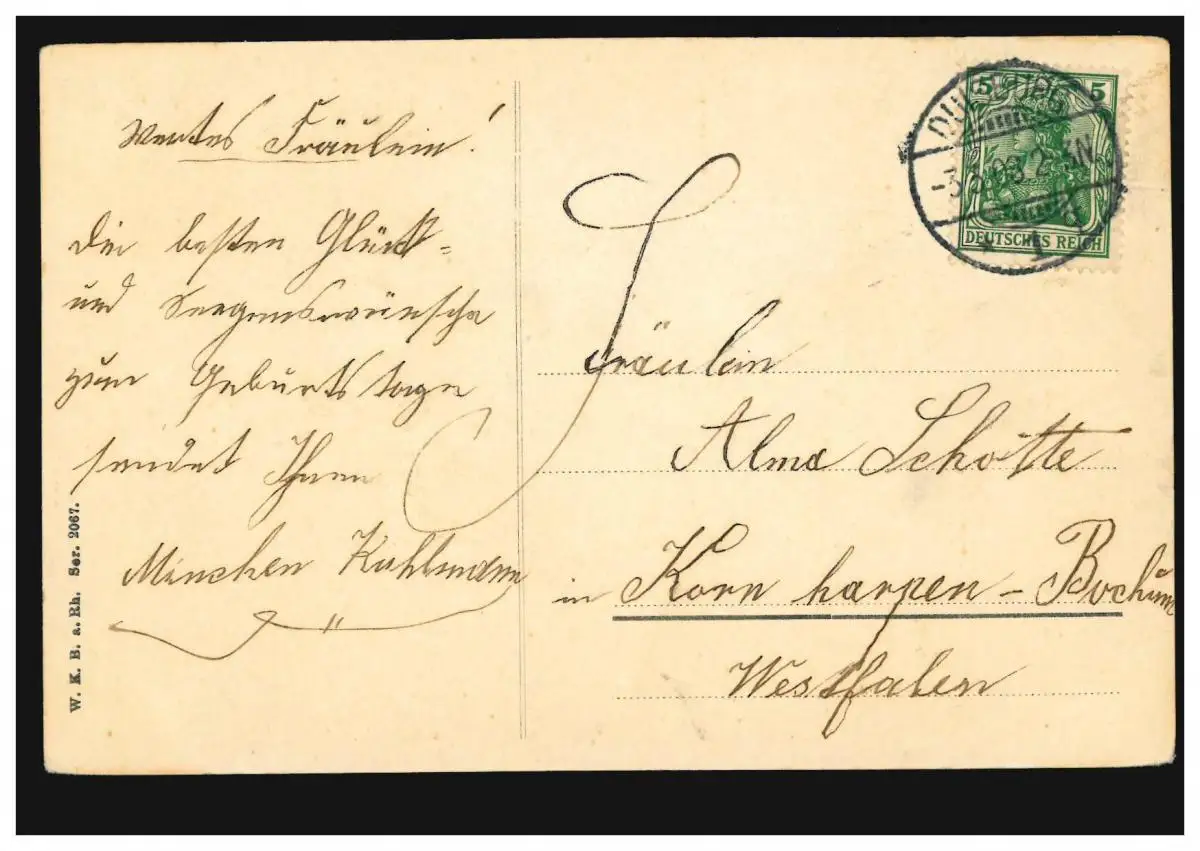 Wertes Fräulein!
die besten Glück-
und Seegenswünsche
zum Geburtstage
sendet Ihnen
Minchen Kuhlmann
W. K. B. a. Rh. Ser. 2067.
5 5
DEUTSCHES REICH
DUISBURG
2-3N
1
Fräulein
Alma Schotte
in Korn harpen - Bochum
Westfalen